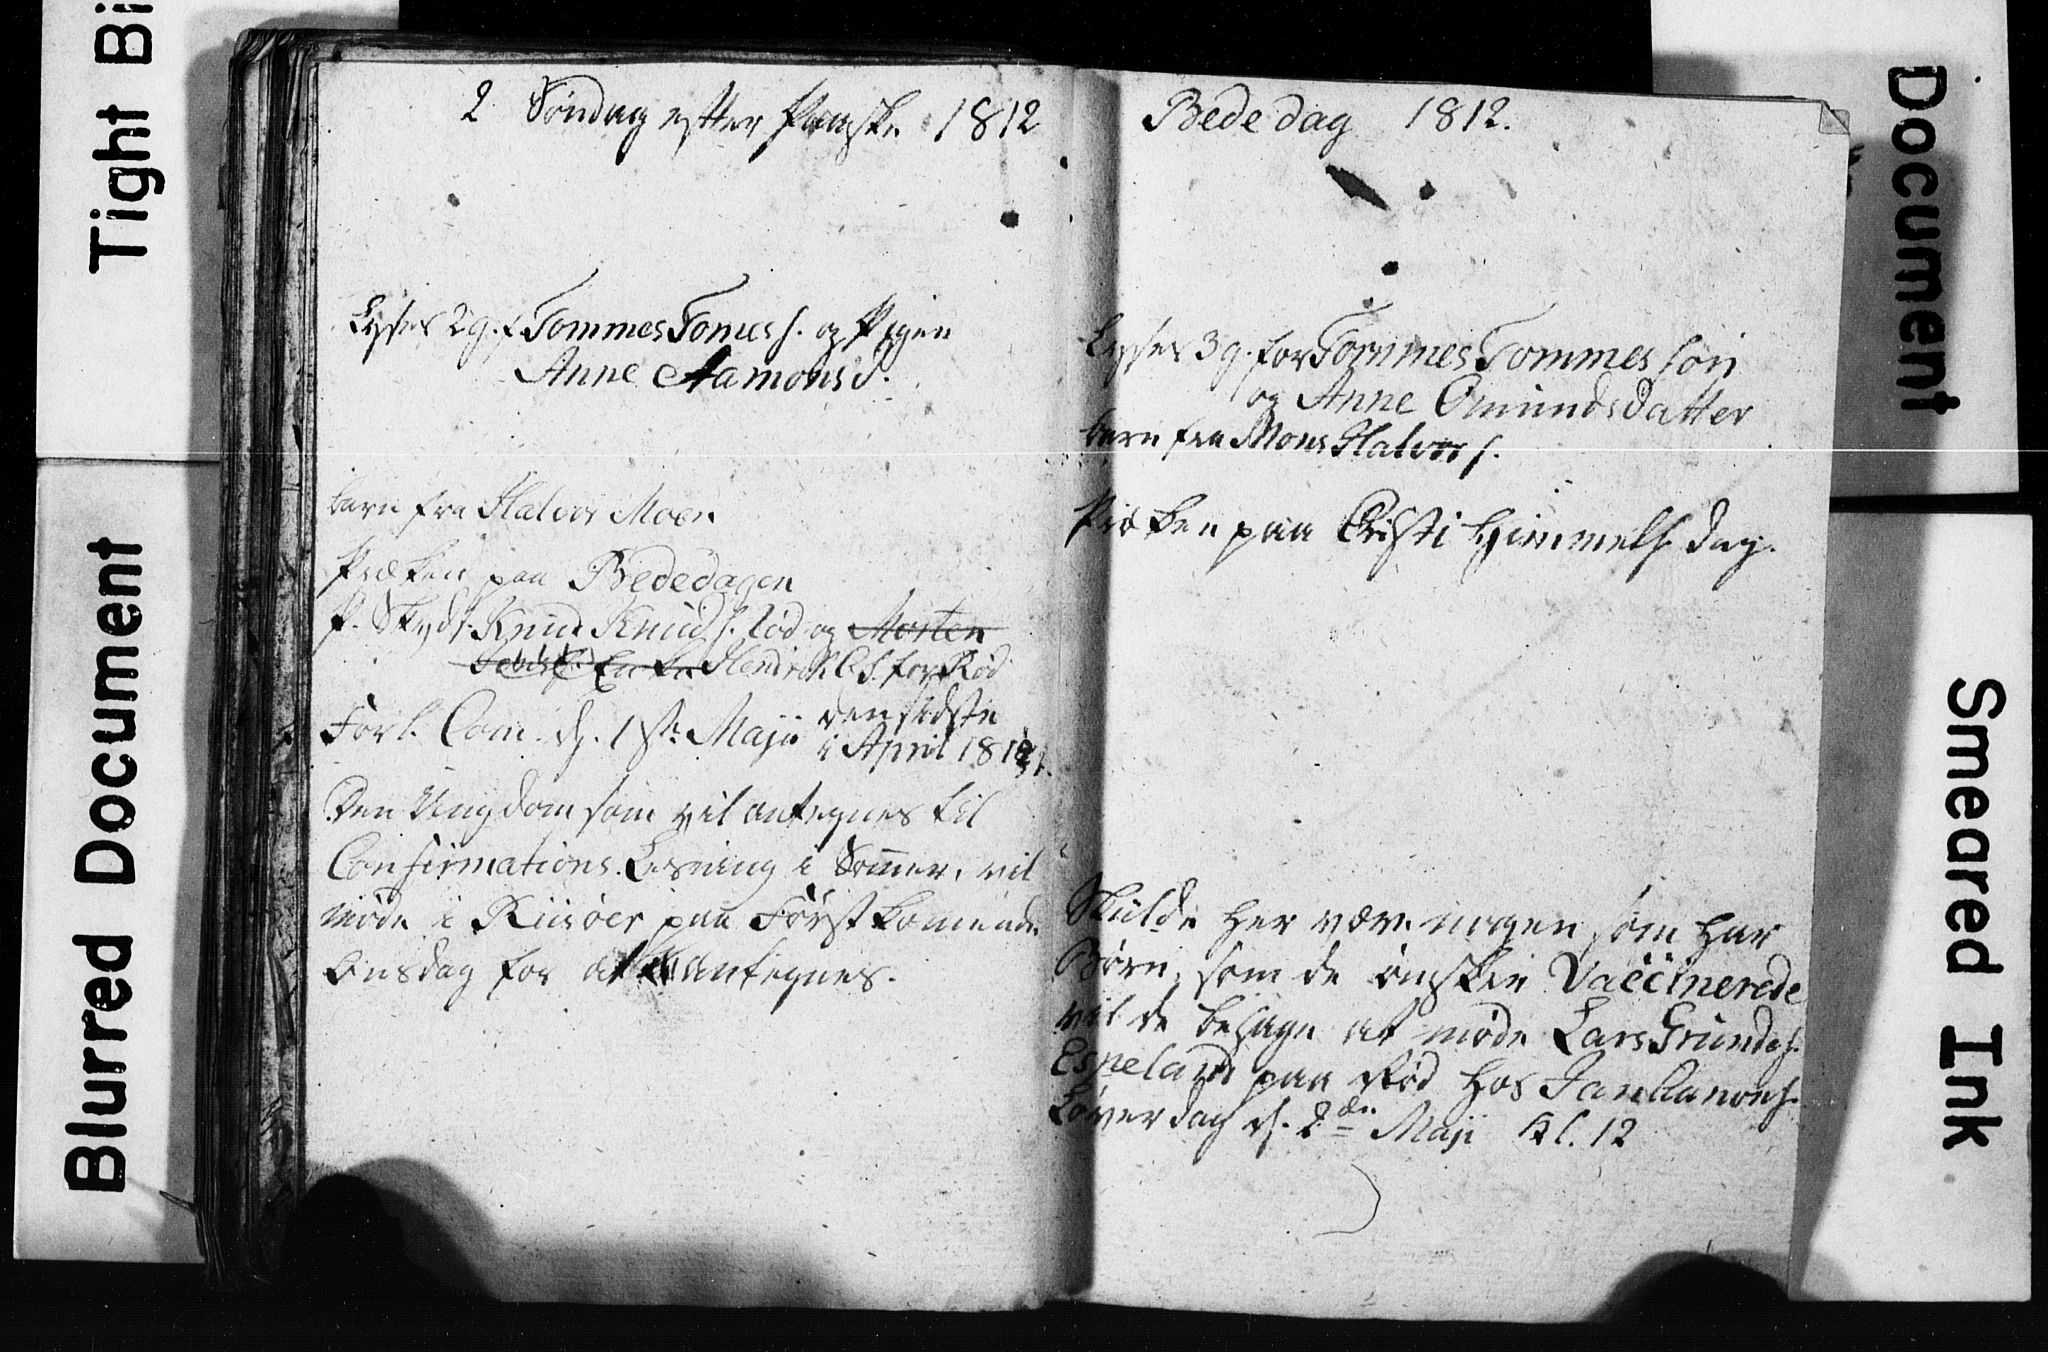 Tight Bi
Blurred Document
2 Søndag efter Paaske 1812
Lyses 2 g. f. Tommes Tomes s. og Pigen
Anne Aamonsd.
barn fra Halvor Moen
Præken paa Bededagen
P. Skyds. Knud Knud s. Lod og Morten
Hendrich for Rød
Forl. Com. d. 1ste Maji den sidste
i April 1812
Den Ungdom som vil antegnes til
Confirmations Lesning i Sommer, vil
møde i Riisøer paa Først komende
Onsdag for at antegnes.
Bededag 1812.
Lyses 3 g. for Tommes Tommes søn
og Anne Omundsdatter
barn fra Mons Halvors s.
Præken paa Cristi Himmelf. dag.
Skulde her være nogen som har
Børn, som de ønsker Vaccinerede
vil de behage at møde Lars Grundes.
Espeland paa Rød hos Jan Aanons.
Løverdag d. 2den Maji Kl. 12
Document
Smeared Ink